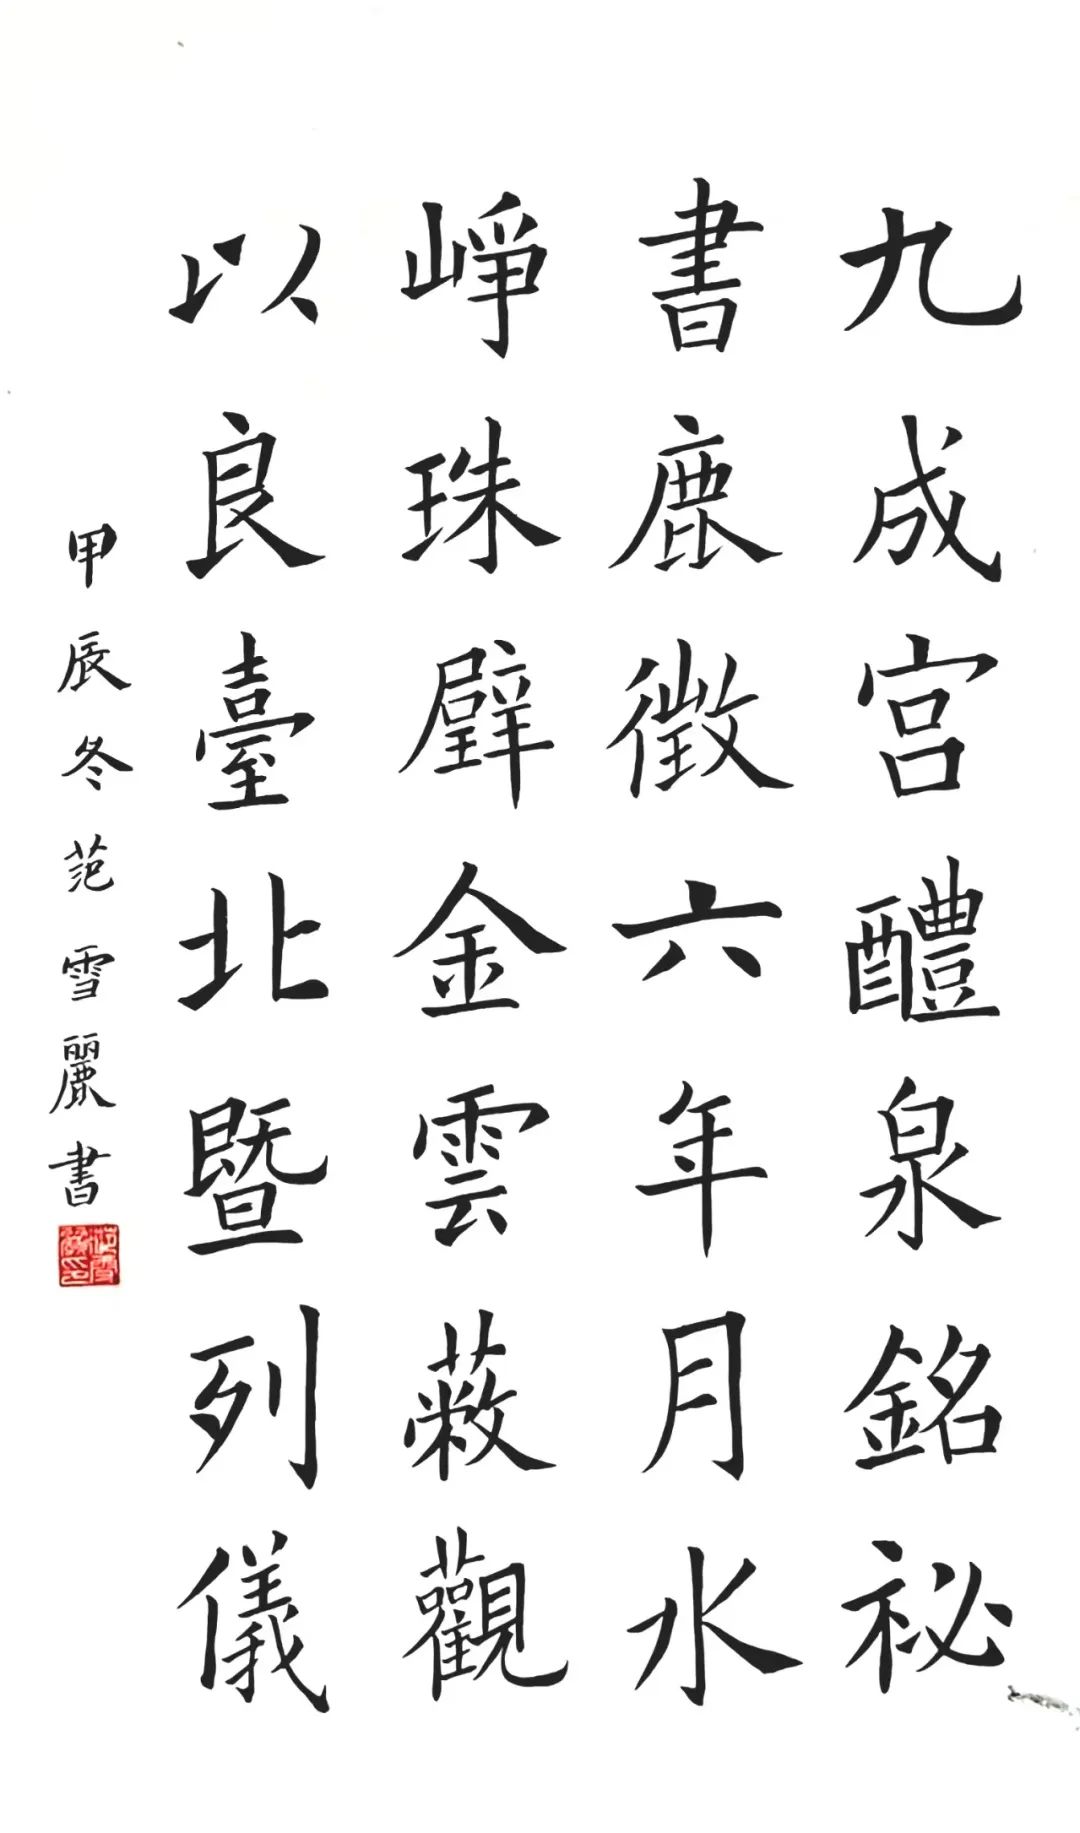 九成宫醴泉銘祕
書鹿徵六年月水
崢珠璧金雲蔽觀
以良臺北暨列儀
甲辰冬范雪麗書